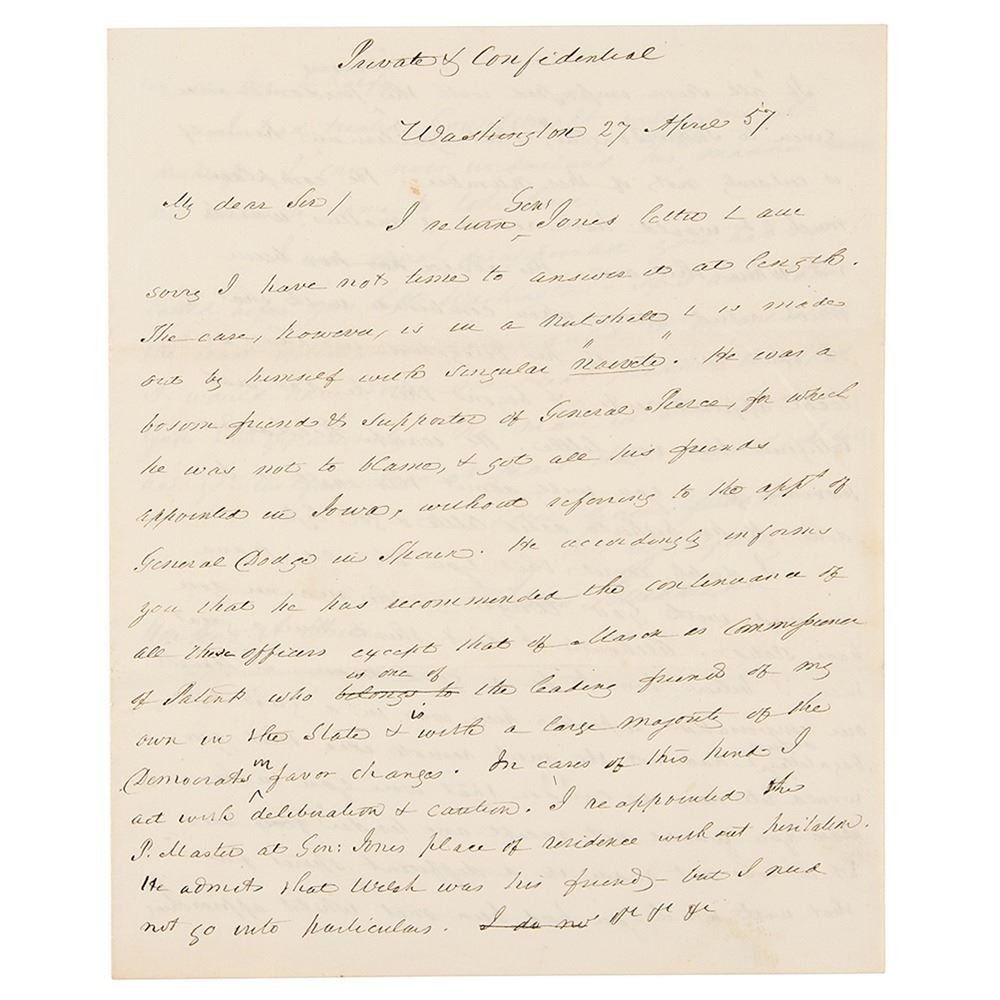 Private & Confidential
Washington 27 April 57.
My dear Sir/
I return Genl Jones letter & am
sorry I have not time to answer it at length.
The case, however, is in a nutshell & is made
out by himself with singular "naivete". He was a
bosom friend & supporter of General Pierce, for which
he was not to blame, & got all his friends
appointed in Iowa, without referring to the appt. of
General Dodge in Spain. He accordingly informs
you that he has recommended the continuance of
all these officers except that of Mason as Commissioner
of Patents who belongs to is one of the leading friends of my
own in the State & is with a large majority of the
Democrats in favor changes. In cases of this kind I
act with deliberation & caution. I reappointed the
P. Master at Gen: Jones place of residence without hesitation.
He admits that Welsh was his friend – but I need
not go into particulars. I do no &c &c &c